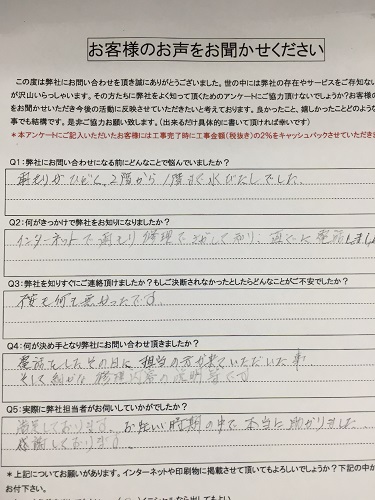 お客様のお声をお聞かせください
この度は弊社にお問い合わせを頂き誠にありがとうございました。世の中には弊社の存在やサービスをご存知ない
が沢山いらっしゃいます。その方たちに弊社をよく知って頂くためのアンケートにご協力頂けないでしょうか?お客様の
をお聞かせいただき今後の活動に反映させていきたいと考えております。良かったこと、嬉しかったことどのような
事でも結構です。是非ご協力お願い致します。(出来るだけ具体的に書いて頂ければ幸いです)
*本アンケートにご記入いただいたお客様には工事完了時に工事金額(税抜き)の2%をキャッシュバックさせていただきま
Q1:弊社にお問い合わせになる前にどんなことで悩んでいましたか?
雨もりがひどく、2階から1階まで水びたしでした。
Q2:何がきっかけで弊社をお知りになりましたか?
インターネットで雨もり修理でさがして知り、直ぐに電話しまし
Q3:弊社を知りすぐにご連絡頂けましたか?もしご決断されなかったとしたらどんなことがご不安でしたか?
不安も何も無かったです。
Q4:何が決め手となり弊社にお問い合わせ頂きましたか?
電話をしたその日に担当の方が来ていただいた事
そして細かな修理内容の説明等です
Q5:実際に弊社担当者がお伺いしていかがでしたか?
満足しております。お忙しい時期の中で本当に助かりました
感謝しております。
*上記についてお願いがあります。インターネットや印刷物に掲載させて頂いてもよろしいでしょうか?下記の中か
お付下さい。